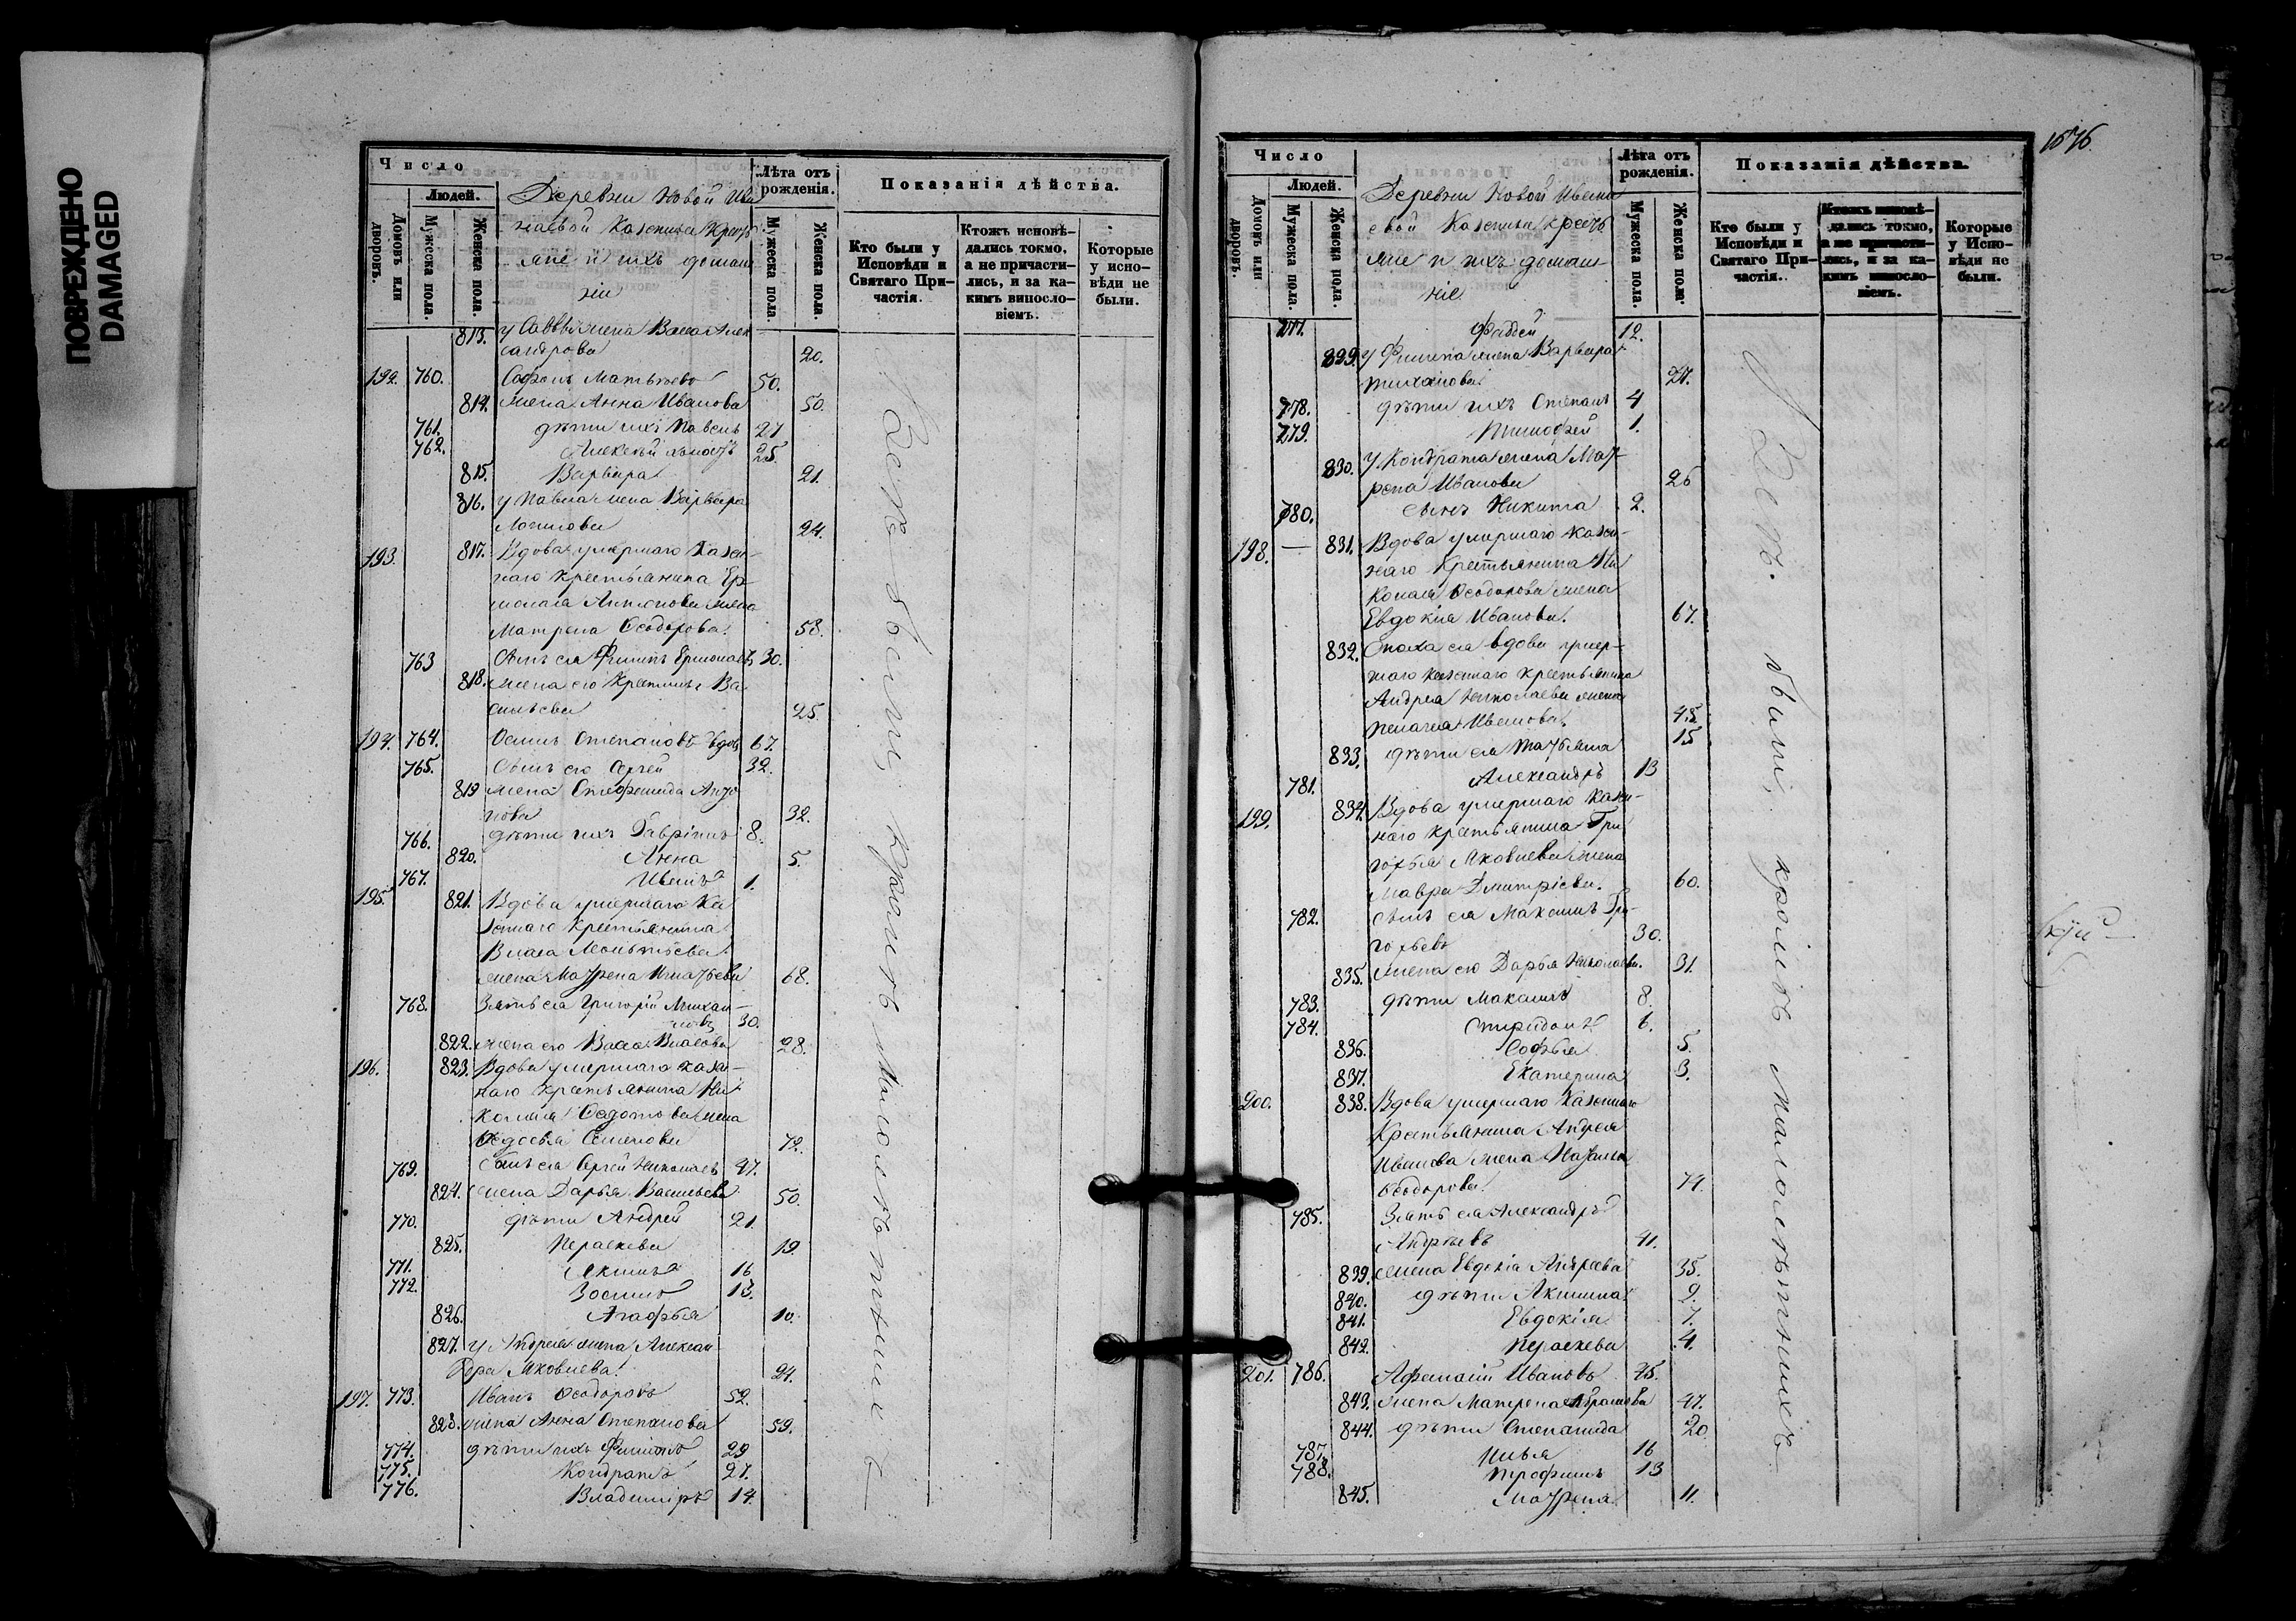 ПОВРЕЖДЕНО
DAMAGED
Число
Людей.
Домовъ или дворовъ.
Мужеска пола.
Женска пола.
Деревни Новой Ива
новой Казенные Кресть
яне и ихъ домаш
нiи
Лѣта отъ рожденія.
Мужеска пола.
Женска пола.
Показанія дѣйства.
Кто были у Исповѣди и Святаго Причастія.
Ктожъ исповѣдались токмо, а не причастились, и за какимъ винословіемъ.
Которые у исповѣди не были.
813. у Саввы жена Васса Алек
сандрова 20.
192. 760. Софонъ Матвѣевъ 50.
814. жена Анна Иванова 50.
761. дѣти ихъ Павелъ 27
762. Алексѣй холостъ 25.
815. Варвара 21.
816. у Павла жена Варвара
Логинова 24.
193. 817. Вдова умершаго Казен-
наго Крестьянина Ер
молая Антонова жена
Матрена Ѳеодорова. 58.
763 Сынъ ея Филипъ Ермолаевъ 30.
818. жена его Крестинья Ва
сильева 25.
194. 764. Осипъ Степановъ вдов 67.
765. Сынъ его Сергей 32.
819 жена Стефанида Анто
нова 32.
766. дѣти ихъ Гаврiилъ 8.
820. Анна 5.
767. Иванъ 1.
195. 821. Вдова умершаго Ка
зеннаго Крестьянина
Власа Леонтьева
жена Матрена Игнатьева 68.
768. Зять ея Григорiй Михай-
ловъ 30.
822. жена его Васса Власова 28.
196. 823. Вдова умершаго казен-
наго крестьянина Ни
колая Ѳедотова жена
Ѳедосья Семенова 72.
769. Сынъ ея Сергей Николаевъ 47.
824. жена Дарья Васильева 50.
770. дѣти Андрей 21.
825. Пераскева 19.
771. Акимъ 16
772. Зосимъ 13.
826. Агафья 10.
827. у Андрея жена Алексан
дра Яковлева 24.
197. 773. Иванъ Ѳеодоровъ 52.
828. жена Анна Степанова 59.
774. дѣти ихъ Филипъ 29
775. Кондратъ 27.
776. Владимiръ 14.
Всѣ были, кромѣ малолѣтних
1676.
Число
Людей.
Домовъ или дворовъ.
Мужеска пола.
Женска пола.
Деревни Новой Ивано
вой Казенные кресть
яне и ихъ домаш-
нiе
Лѣта отъ рожденія.
Мужеска пола.
Женска пола.
Показанія дѣйства.
Кто были у Исповѣди и Святаго Причастія.
Ктожъ исповѣдались токмо, а не причастились, и за какимъ винословіемъ.
Которые у Исповѣди не были.
777. Фаддей 12.
829. у Филипа жена Варвара
Тиханова 27.
778. дѣти ихъ Степанъ 4
779. Тимофей 1.
830. у Кондрата жена Мат-
рена Иванова 26
780. сынъ Никита 2.
198. — 831. Вдова умершаго казен-
наго Крестьянина Ни
колая Ѳеодорова жена
Евдокiя Иванова. 67.
832. Сноха ея вдова умер-
шаго казеннаго крестьянина
Андрея Николаева жена
Пелагея Иванова. 45.
833. дѣти ея Татьяна 15
781. Александръ 13
199. 834. Вдова умершаго казен-
наго крестьянина Гри
горья Яковлева жена
Мавра Дмитрiева. 60.
782. сынъ ея Максимъ Гри-
горьевъ 30.
835. жена его Дарья Николаева. 31.
783. дѣти Максимъ 8.
784. Спиридонъ 6.
836. Софья 5.
837. Екатерина 3.
200. 838. Вдова умершаго Казеннаго
Крестьянина Андрея
Иванова жена Наталья
Ѳеодорова 74.
785. Зять ея Александръ
Андреевъ 41.
839. жена Евдокiя Андреева 35.
840. дѣти Акилина 9.
841. Евдокiя 7.
842. Пераскева 4.
201. 786. Афанасiй Ивановъ 45.
843. жена Матрена Абрамова 47.
844. дѣти Степанида 20
787. Илья 16
788. Трофимъ 13
845. Матрена 11.
Всѣ были, кромѣ малолѣтнихъ